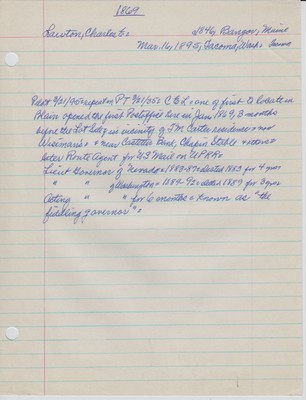 1869
Lawton, Charles E. 1846 Bangor, Maine
Mar. 16, 1895, Tacoma, Wash.
Pilot 9/21/1905 repeated in PT 9/21/35: C E L, one of first to locate in
Blair opened the first Postoffice here in Jan 1869, 3 months
before the Lot Sale in vicinity of T.M. Carter residence, now
near Castetter Bank, Chapin Stable
later Route Agent for US Mail on UPRR.
Lieut Governor of Nevada, 1883-87, elected 1883 for 4 years
" " of Washington, 1889-92, elected 1889 for 3 years
Acting " " for 6 months. Known as "the
fiddling governor".